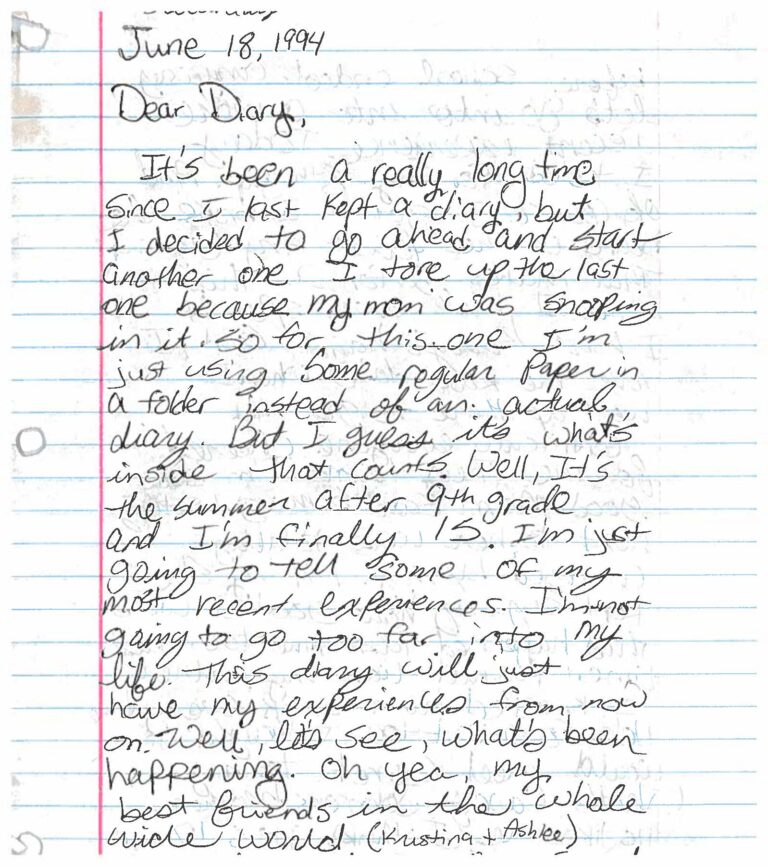 June 18, 1994
Dear Diary,
It's been a really long time
since I last kept a diary, but
I decided to go ahead and start
another one I tore up the last
one because my mom was snooping
in it. So for this one I'm
just using some regular paper in
a folder instead of an actual
diary. But I guess it's what's
inside that counts. Well, It's
the summer after 9th grade
and I'm finally 15. I'm just
going to tell some of my
most recent experiences. I'm not
going to go too far into my
life. This diary will just
have my experiences from now
on. Well, let's see, what's been
happening. Oh yea, my
best friends in the whole
wide world (Kristina + Ashlee)